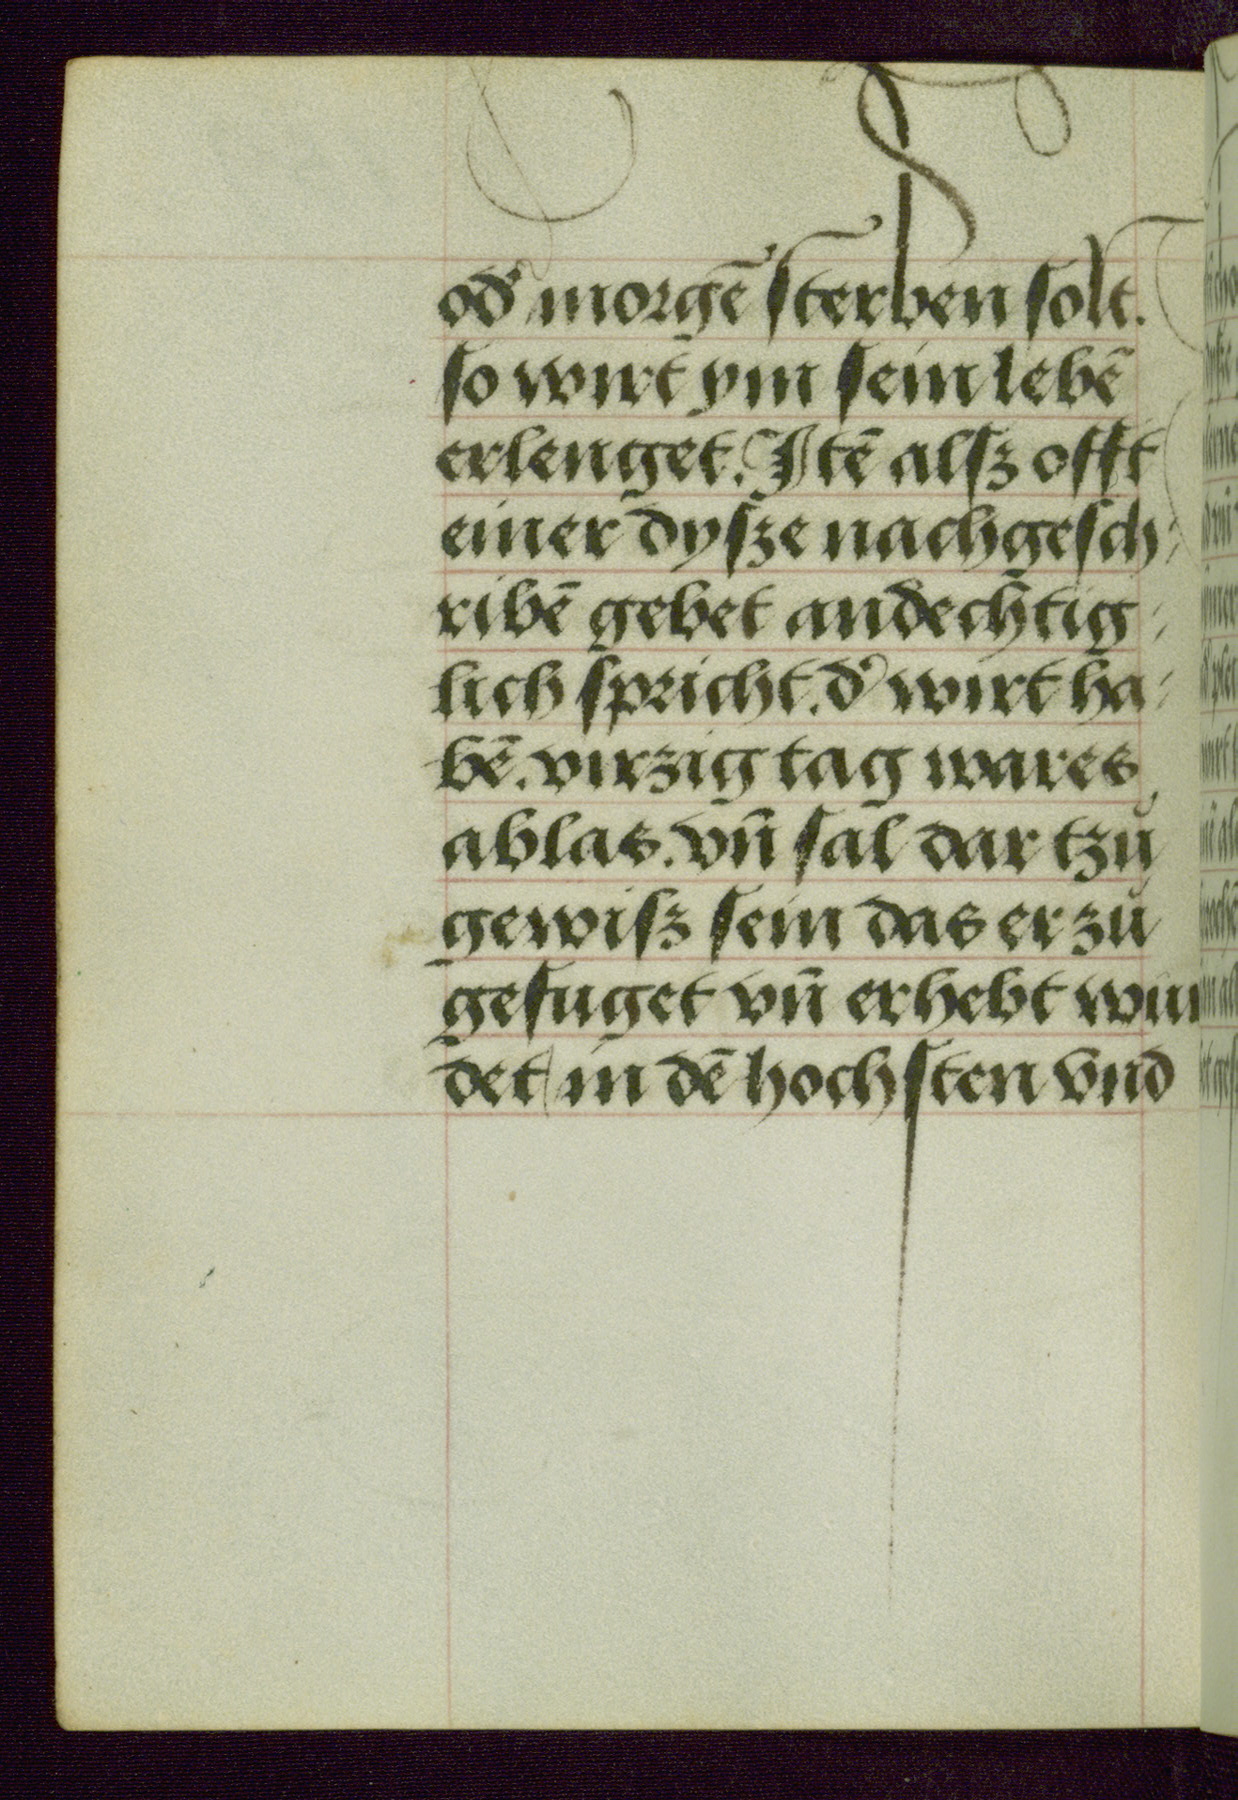 od' morgē ſterben ſolt.
ſo wirt ym ſein lebē
erlenget. Itē alſz offt
einer dyſze nachgeſch:
ribē gebet andechtig:
lich ſpricht. d' wirt ha:
bē. virzig tag wares
ablas. vn̄ ſal dar tzů
gewiſz ſein das er zů
gefuget vn̄ erhebt wiu
det in dē hochſten vnd